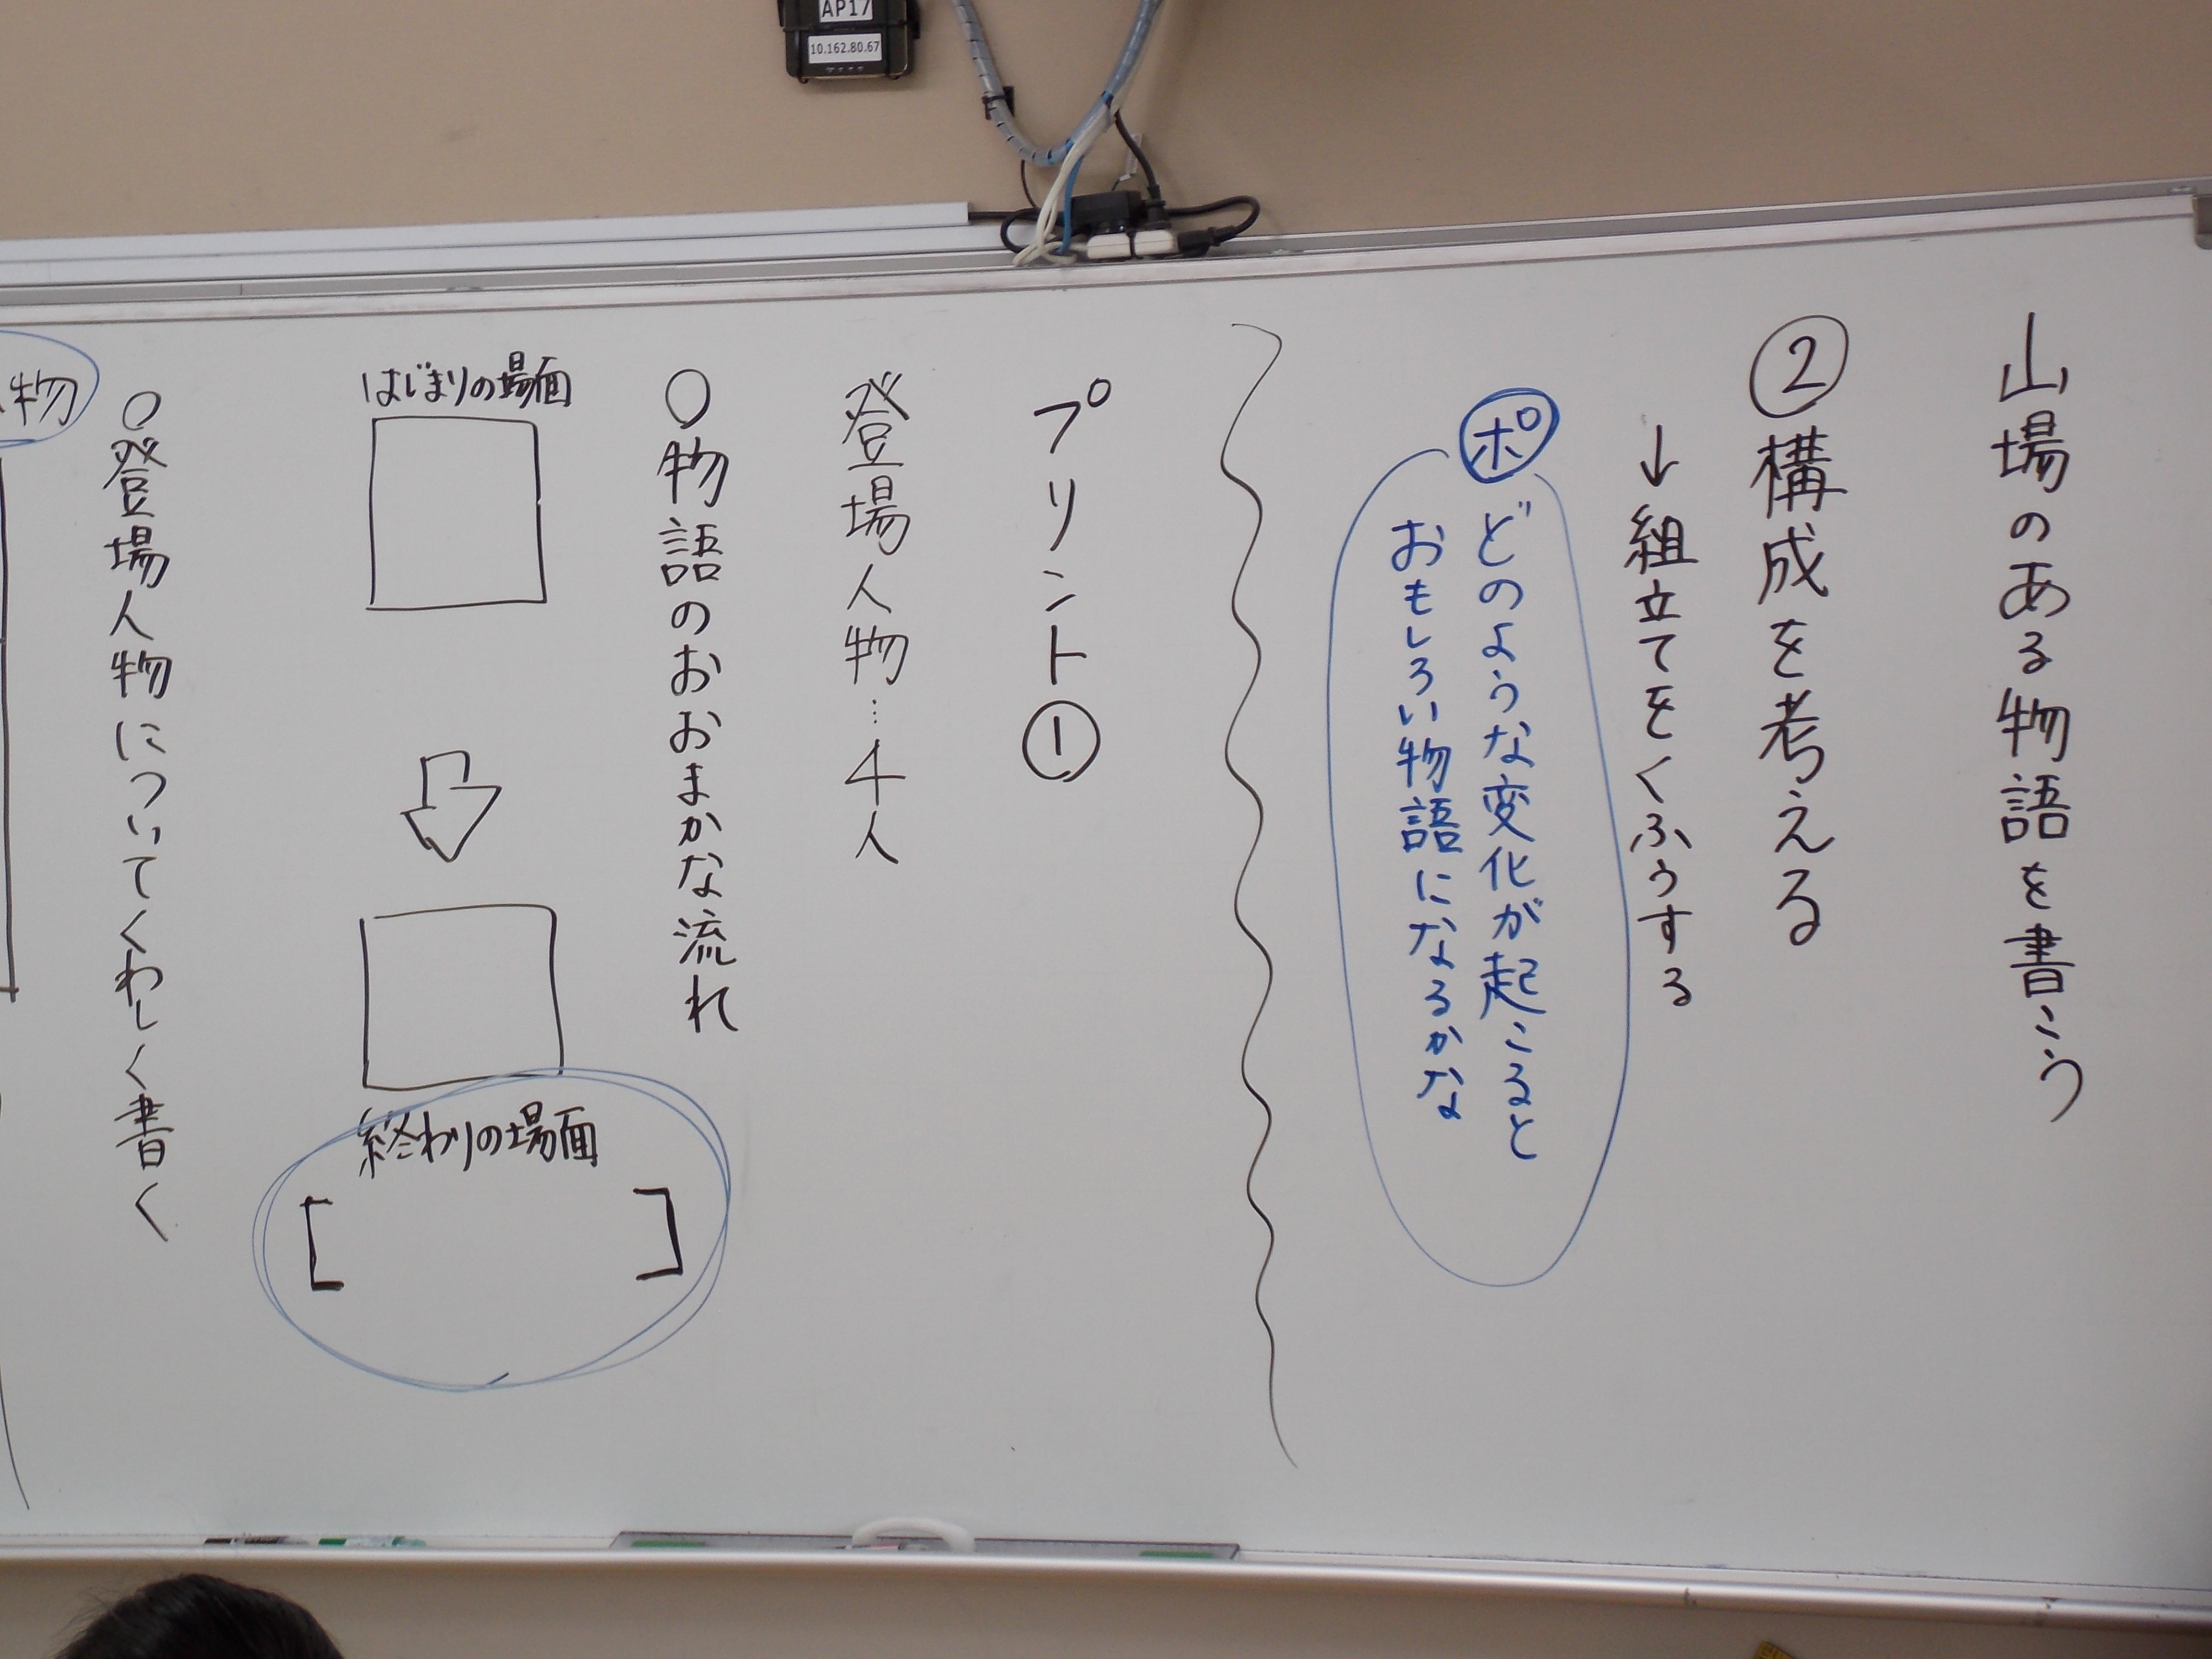 AP17
10.162.80.67
山場のある物語を書こう
②構成を考える
↓組立てをくふうする
ポ
どのような変化が起こると
おもしろい物語になるかな
プリント①
登場人物…4人
○物語のおおまかな流れ
はじまりの場面
終わりの場面
[ ]
○登場人物についてくわしく書く
物